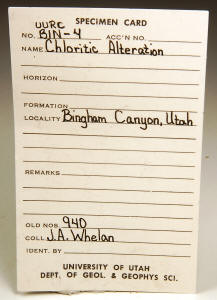 UURC SPECIMEN CARD
NO. BIN-4 ACC'N NO.
NAME Chloritic Alteration
HORIZON
FORMATION
LOCALITY Bingham Canyon, Utah
REMARKS
OLD NOS. 940
COLL. J.A. Whelan
IDENT. BY
UNIVERSITY OF UTAH
DEPT. OF GEOL. & GEOPHYS SCI.